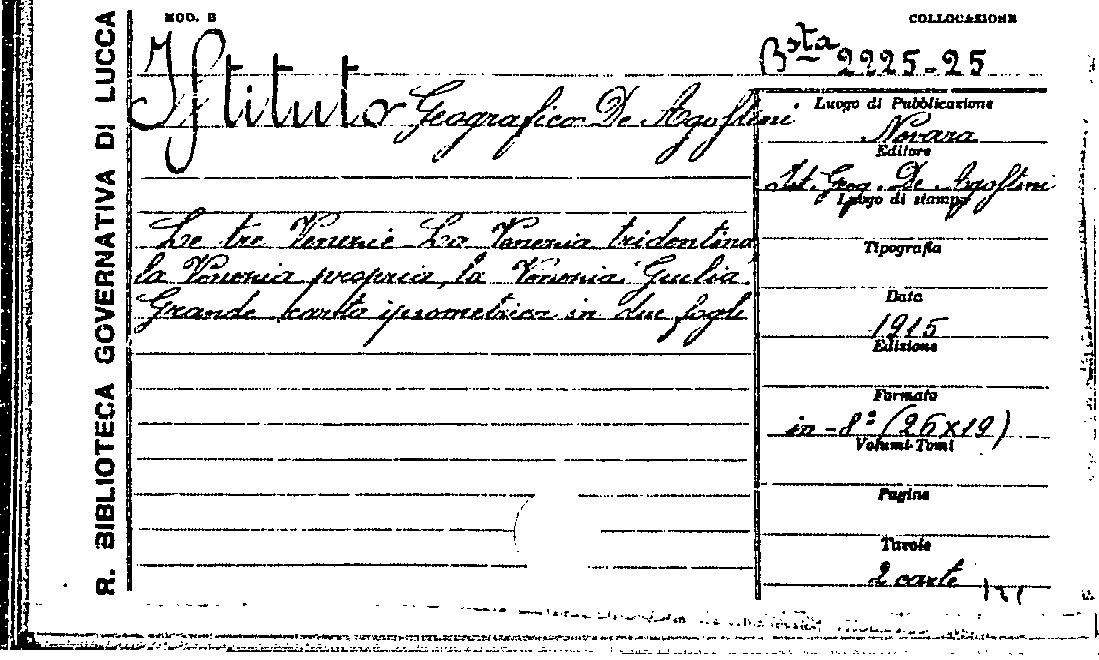 MOD. B
COLLOCAZIONE
R. BIBLIOTECA GOVERNATIVA DI LUCCA
Bsta 2225-25
Istituto Geografico De Agostini
Luogo di Pubblicazione
Novara
Editore
Ist. Geog. De Agostini
Luogo di stampa
Le tre Venezie La Venezia tridentina,
la Venezia propria, la Venezia Giulia.
Grande carta ipsometrica in due fogli
Tipografia
Data
1915
Edizione
Formato
in-8º (26x19)
Volumi-Tomi
Pagine
Tavole
2 carte